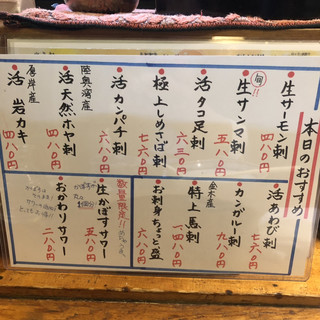 本日のおすすめ
・生サーモン刺
四八〇円
旬!!
・生サンマ刺
五八〇円
・活タコ足刺
六三〇円
・極上しめさば刺
七六〇円
・活カンパチ刺
六八〇円
陸奥湾産
・活天然ホヤ刺
四八〇円
・活岩カキ
四八〇円
・活あわび刺
七六〇円
・カンガルー刺
九八〇円
・特上馬刺
一、四八〇円
・お刺身ちょっと盛
六八〇円
数量限定!!
・生かぼすサワー
五八〇円
・おかわりサワー
二八〇円